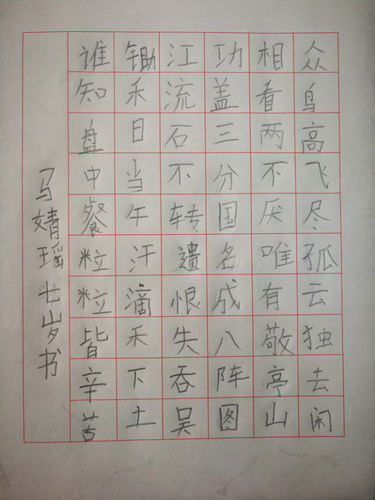 众鸟高飞尽孤云独去闲
相看两不厌唯有敬亭山
功盖三分国名成八阵图
江流石不转遗恨失吞吴
锄禾日当午汗滴禾下土
谁知盘中餐粒粒皆辛苦
马婧瑶七岁书